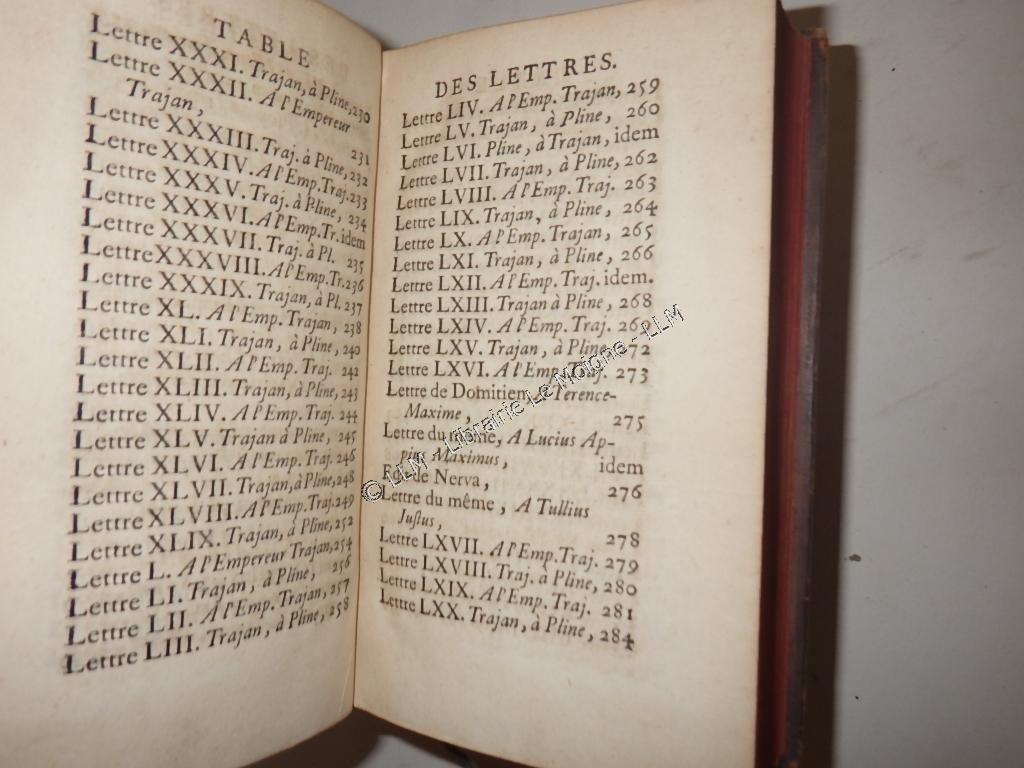 TABLE
Lettre XXXI. Trajan, à Pline, 230
Lettre XXXII. A l'Empereur
Trajan, 231
Lettre XXXIII. Traj. à Pline, 232
Lettre XXXIV. A l'Emp. Traj. 233
Lettre XXXV. Traj. à Pline, 234
Lettre XXXVI. A l'Emp. Tr. idem
Lettre XXXVII. Traj. à Pl. 235
Lettre XXXVIII. A l'Emp. Tr. 236
Lettre XXXIX. Trajan, à Pl. 237
Lettre XL. A l'Emp. Trajan, 238
Lettre XLI. Trajan, à Pline, 240
Lettre XLII. A l'Emp. Traj. 242
Lettre XLIII. Trajan, à Pline, 243
Lettre XLIV. A l'Emp. Traj. 244
Lettre XLV. Trajan à Pline, 245
Lettre XLVI. A l'Emp. Traj. 246
Lettre XLVII. Trajan, à Pline, 248
Lettre XLVIII. A l'Emp. Traj. 249
Lettre XLIX. Trajan, à Pline, 252
Lettre L. A l'Empereur Trajan, 254
Lettre LI. Trajan, à Pline, 256
Lettre LII. A l'Emp. Trajan, 257
Lettre LIII. Trajan, à Pline, 258
DES LETTRES.
Lettre LIV. A l'Emp. Trajan, 259
Lettre LV. Trajan, à Pline, 260
Lettre LVI. Pline, à Trajan, idem
Lettre LVII. Trajan, à Pline, 262
Lettre LVIII. A l'Emp. Traj. 263
Lettre LIX. Trajan, à Pline, 264
Lettre LX. A l'Emp. Trajan, 265
Lettre LXI. Trajan, à Pline, 266
Lettre LXII. A l'Emp. Traj. idem.
Lettre LXIII. Trajan à Pline, 268
Lettre LXIV. A l'Emp. Traj. 269
Lettre LXV. Trajan, à Pline, 272
Lettre LXVI. A l'Emp. Traj. 273
Lettre de Domitien, A Terence-
Maxime, 275
Lettre du même, A Lucius Ap-
pius Maximus, idem
de Nerva, 276
Lettre du même, A Tullius
Justus, 278
Lettre LXVII. A l'Emp. Traj. 279
Lettre LXVIII. Traj. à Pline, 280
Lettre LXIX. A l'Emp. Traj. 281
Lettre LXX. Trajan, à Pline, 284
© LLM - Librairie Le Moigne - LLM